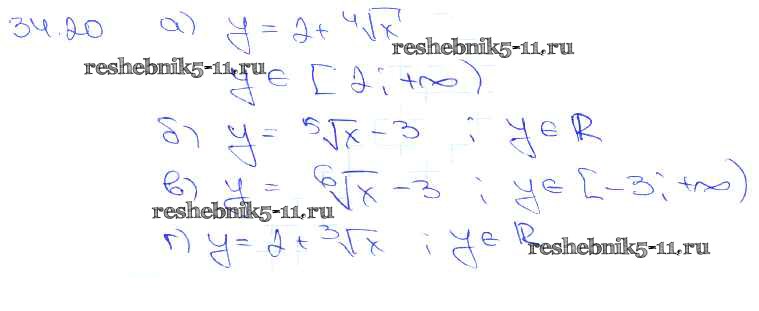 34.20 а) y = 2 + ⁴√x
reshebnik5-11.ru
reshebnik5-11.ru
y ∈ [2; +∞)
б) y = ⁵√x − 3 ; y ∈ R
в) y = ⁶√x − 3 ; y ∈ [−3; +∞)
reshebnik5-11.ru
г) y = 2 + ³√x ; y ∈ R
reshebnik5-11.ru